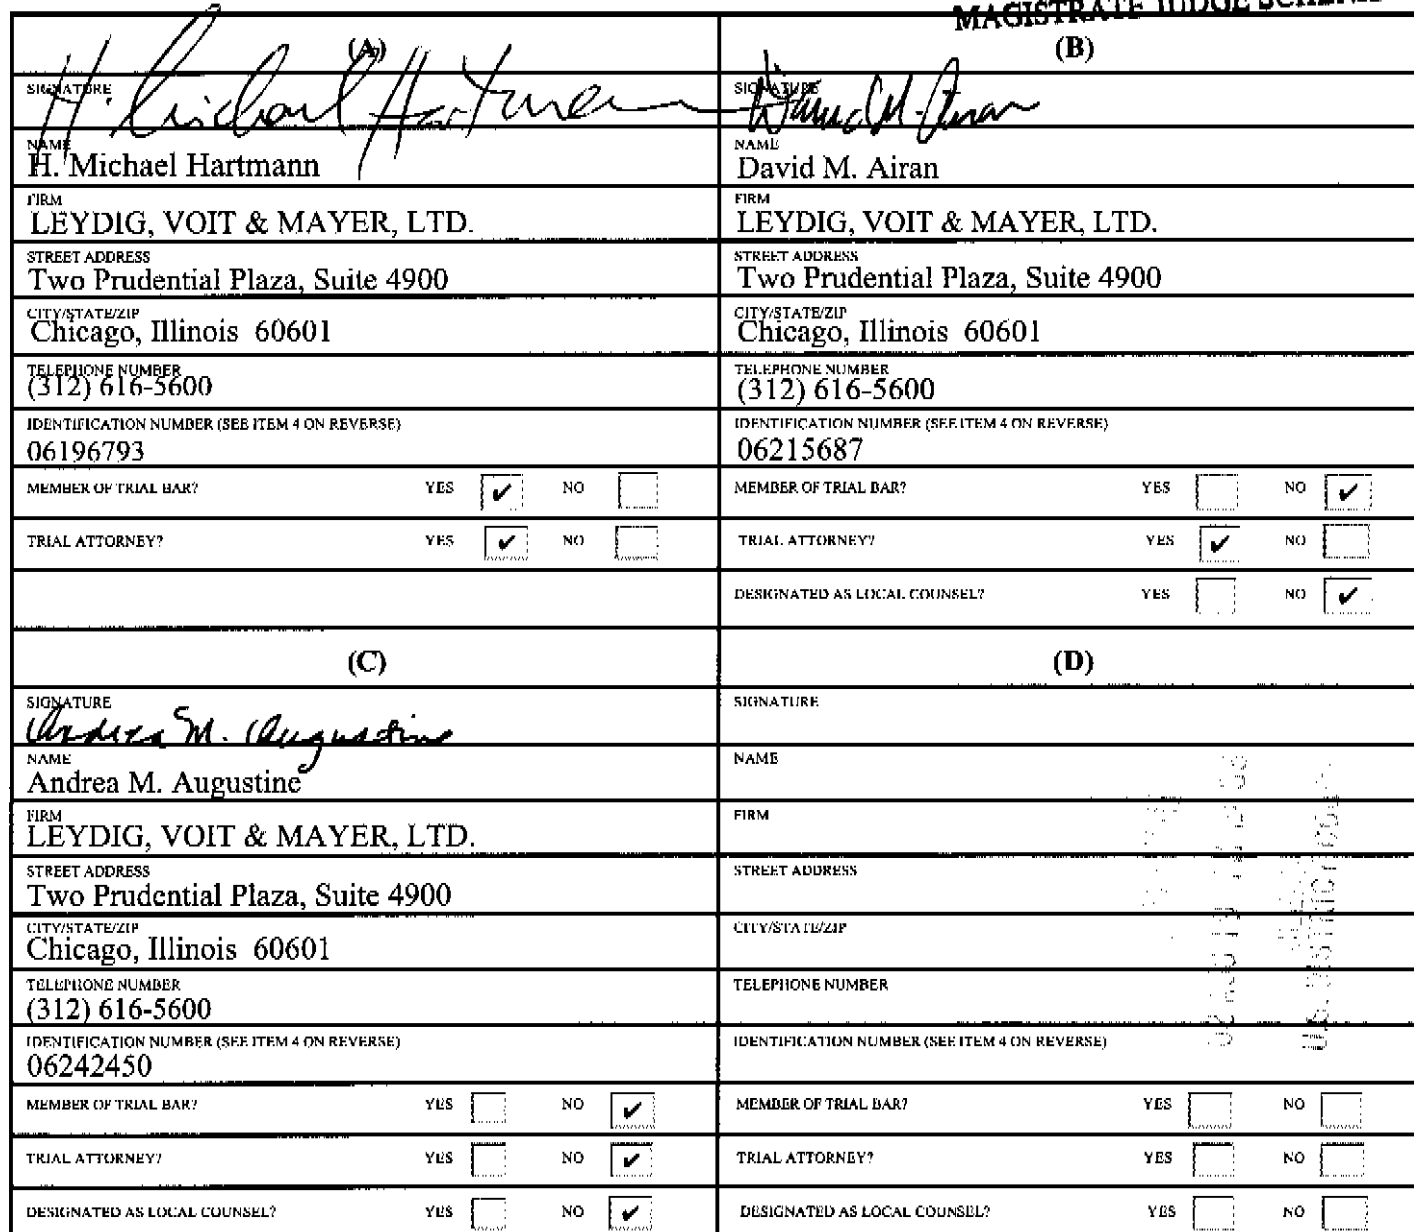 MAGISTRATE JUDGE
(A)
SIGNATURE
H. Michael Hartmann
NAME
H. Michael Hartmann
FIRM
LEYDIG, VOIT & MAYER, LTD.
STREET ADDRESS
Two Prudential Plaza, Suite 4900
CITY/STATE/ZIP
Chicago, Illinois 60601
TELEPHONE NUMBER
(312) 616-5600
IDENTIFICATION NUMBER (SEE ITEM 4 ON REVERSE)
06196793
MEMBER OF TRIAL BAR? YES ✔ NO
TRIAL ATTORNEY? YES ✔ NO
(B)
SIGNATURE
David M. Airan
NAME
David M. Airan
FIRM
LEYDIG, VOIT & MAYER, LTD.
STREET ADDRESS
Two Prudential Plaza, Suite 4900
CITY/STATE/ZIP
Chicago, Illinois 60601
TELEPHONE NUMBER
(312) 616-5600
IDENTIFICATION NUMBER (SEE ITEM 4 ON REVERSE)
06215687
MEMBER OF TRIAL BAR? YES NO ✔
TRIAL ATTORNEY? YES ✔ NO
DESIGNATED AS LOCAL COUNSEL? YES NO ✔
(C)
SIGNATURE
Andrea M. Augustine
NAME
Andrea M. Augustine
FIRM
LEYDIG, VOIT & MAYER, LTD.
STREET ADDRESS
Two Prudential Plaza, Suite 4900
CITY/STATE/ZIP
Chicago, Illinois 60601
TELEPHONE NUMBER
(312) 616-5600
IDENTIFICATION NUMBER (SEE ITEM 4 ON REVERSE)
06242450
MEMBER OF TRIAL BAR? YES NO ✔
TRIAL ATTORNEY? YES NO ✔
DESIGNATED AS LOCAL COUNSEL? YES NO ✔
(D)
SIGNATURE
NAME
FIRM
STREET ADDRESS
CITY/STATE/ZIP
TELEPHONE NUMBER
IDENTIFICATION NUMBER (SEE ITEM 4 ON REVERSE)
MEMBER OF TRIAL BAR? YES NO
TRIAL ATTORNEY? YES NO
DESIGNATED AS LOCAL COUNSEL? YES NO